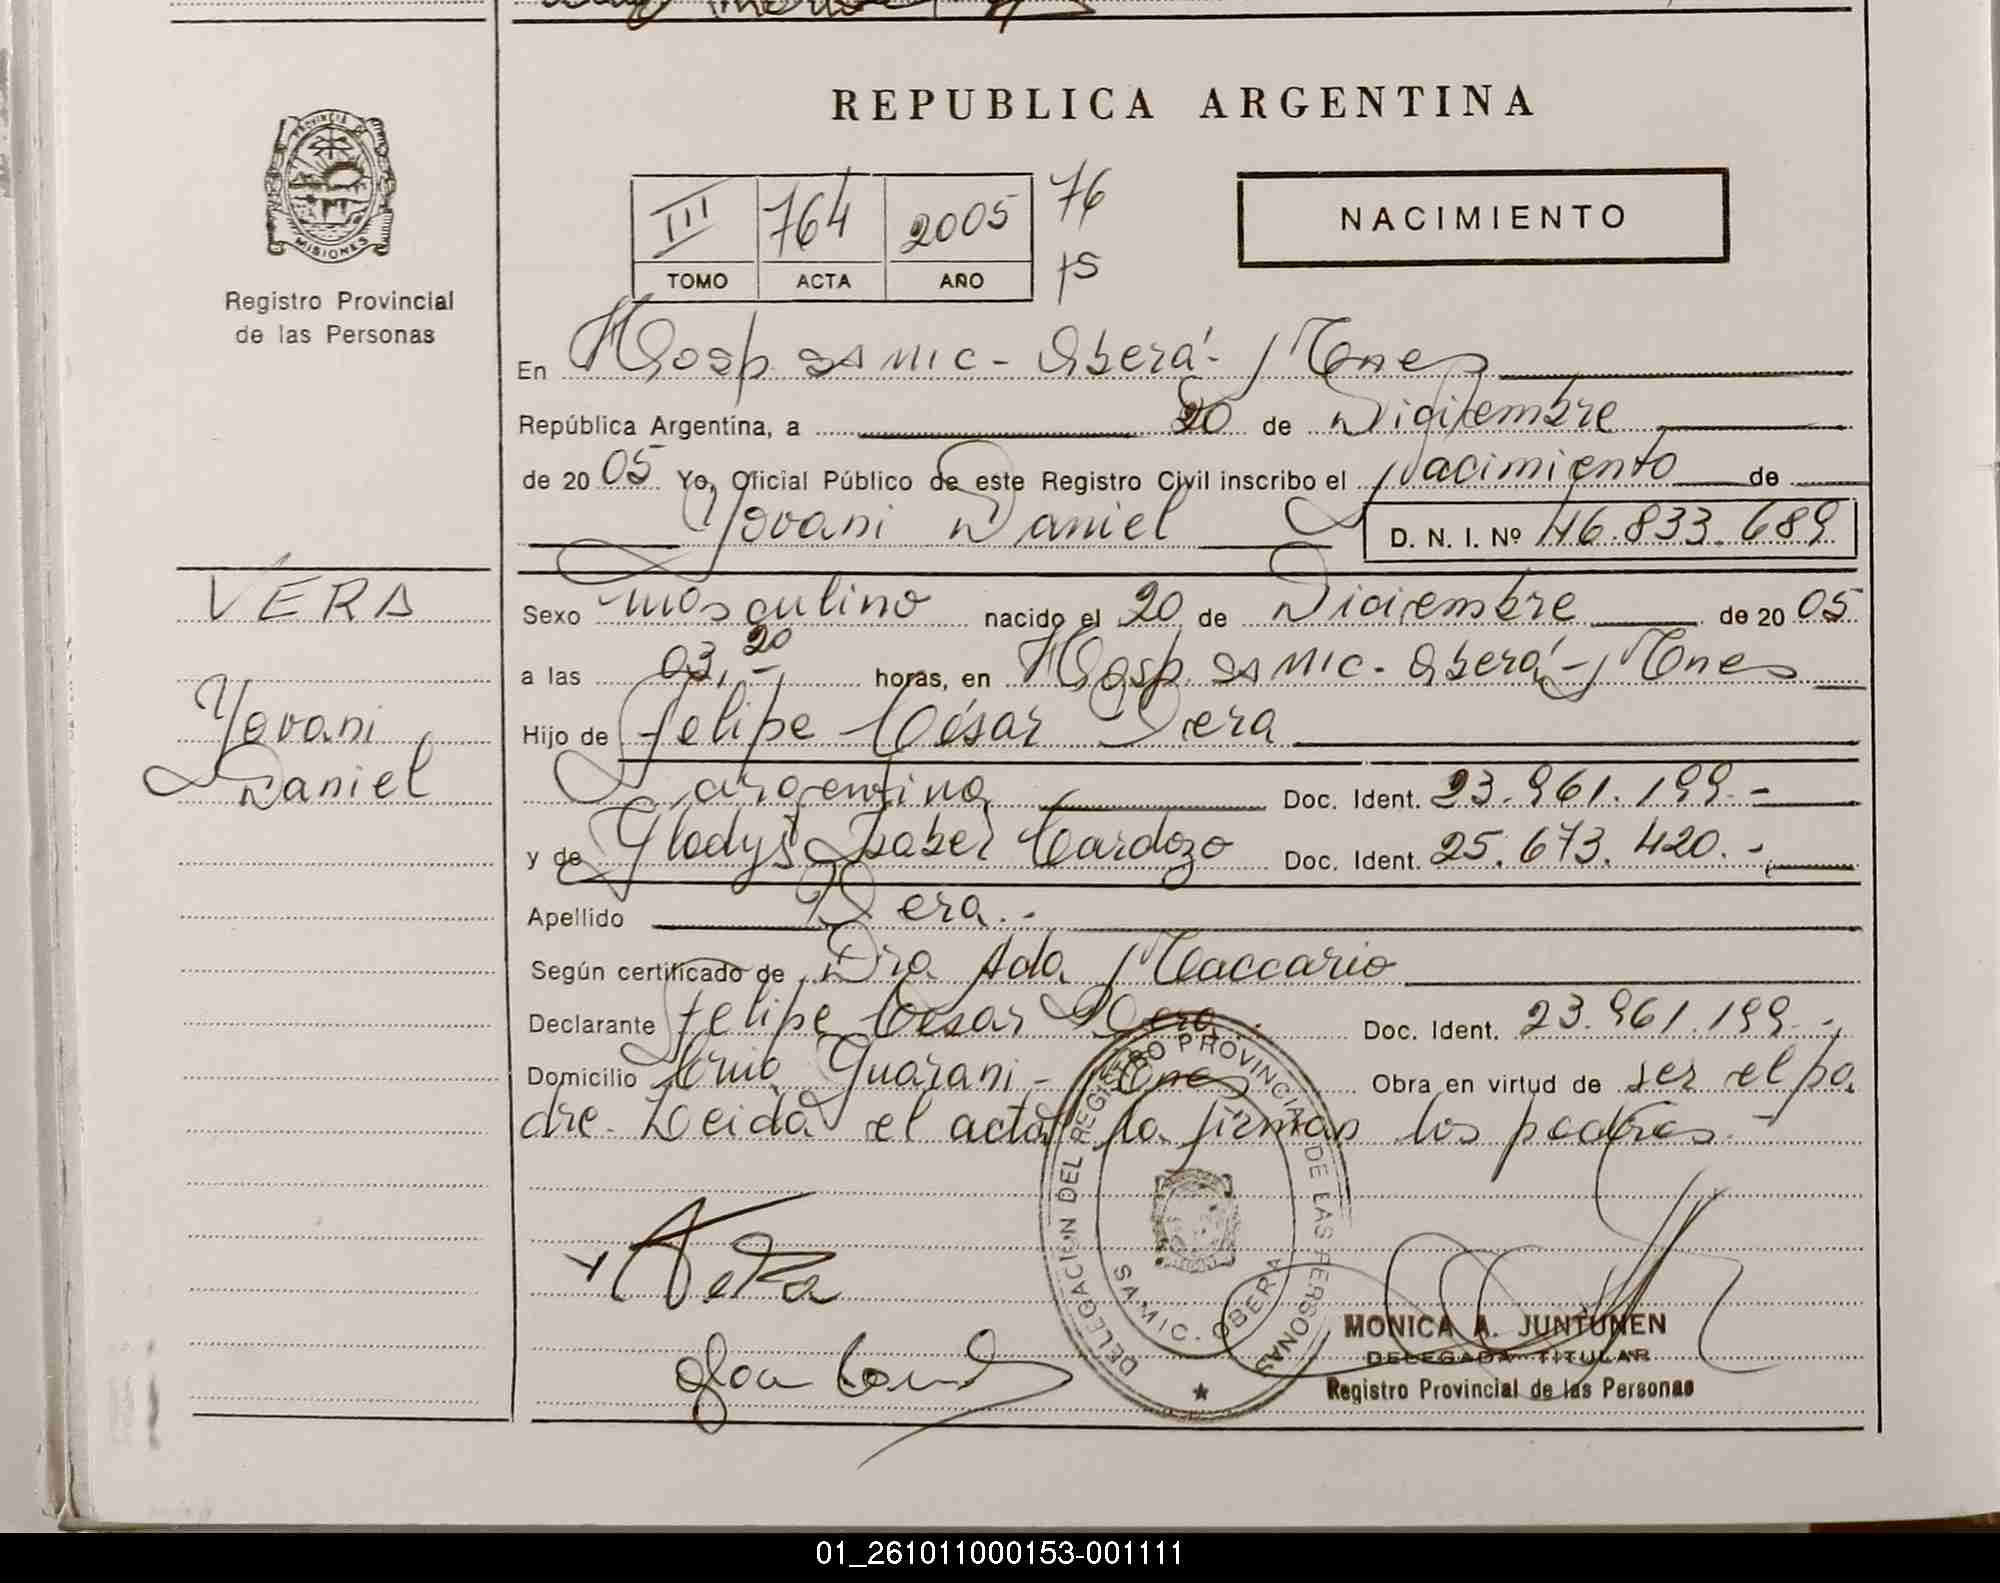 REPUBLICA ARGENTINA
PROVINCIA DE
MISIONES
Registro Provincial
de las Personas
III 764 2005 76
TOMO ACTA AÑO
NACIMIENTO
En Hosp SAMIC - Oberá - Mnes
República Argentina, a 20 de Diciembre
de 20 05 Yo, Oficial Público de este Registro Civil inscribo el Nacimiento de
Yovani Daniel D. N. I. Nº 46.833.689
VERA
Yovani
Daniel
Sexo Masculino nacido el 20 de Diciembre de 20 05
a las 03,20 horas, en Hosp SAMIC - Oberá - Mnes
Hijo de Felipe César Vera
argentino Doc. Ident. 23.961.199.-
y de Gladys Isabel Cardozo Doc. Ident. 25.673.420.-
Apellido Vera.-
Según certificado de Dra Ada Maccario
Declarante Felipe César Vera.- Doc. Ident. 23.961.199.-
Domicilio Guaraní - Mnes Obra en virtud de ser el pa
dre. Leida el acta la firman los padres.-
DELEGACION DEL REGISTRO PROVINCIAL DE LAS PERSONAS
SAMIC. OBERA
Vera
MONICA A. JUNTUNEN
DELEGADA TITULAR
Registro Provincial de las Personas
01_261011000153-001111